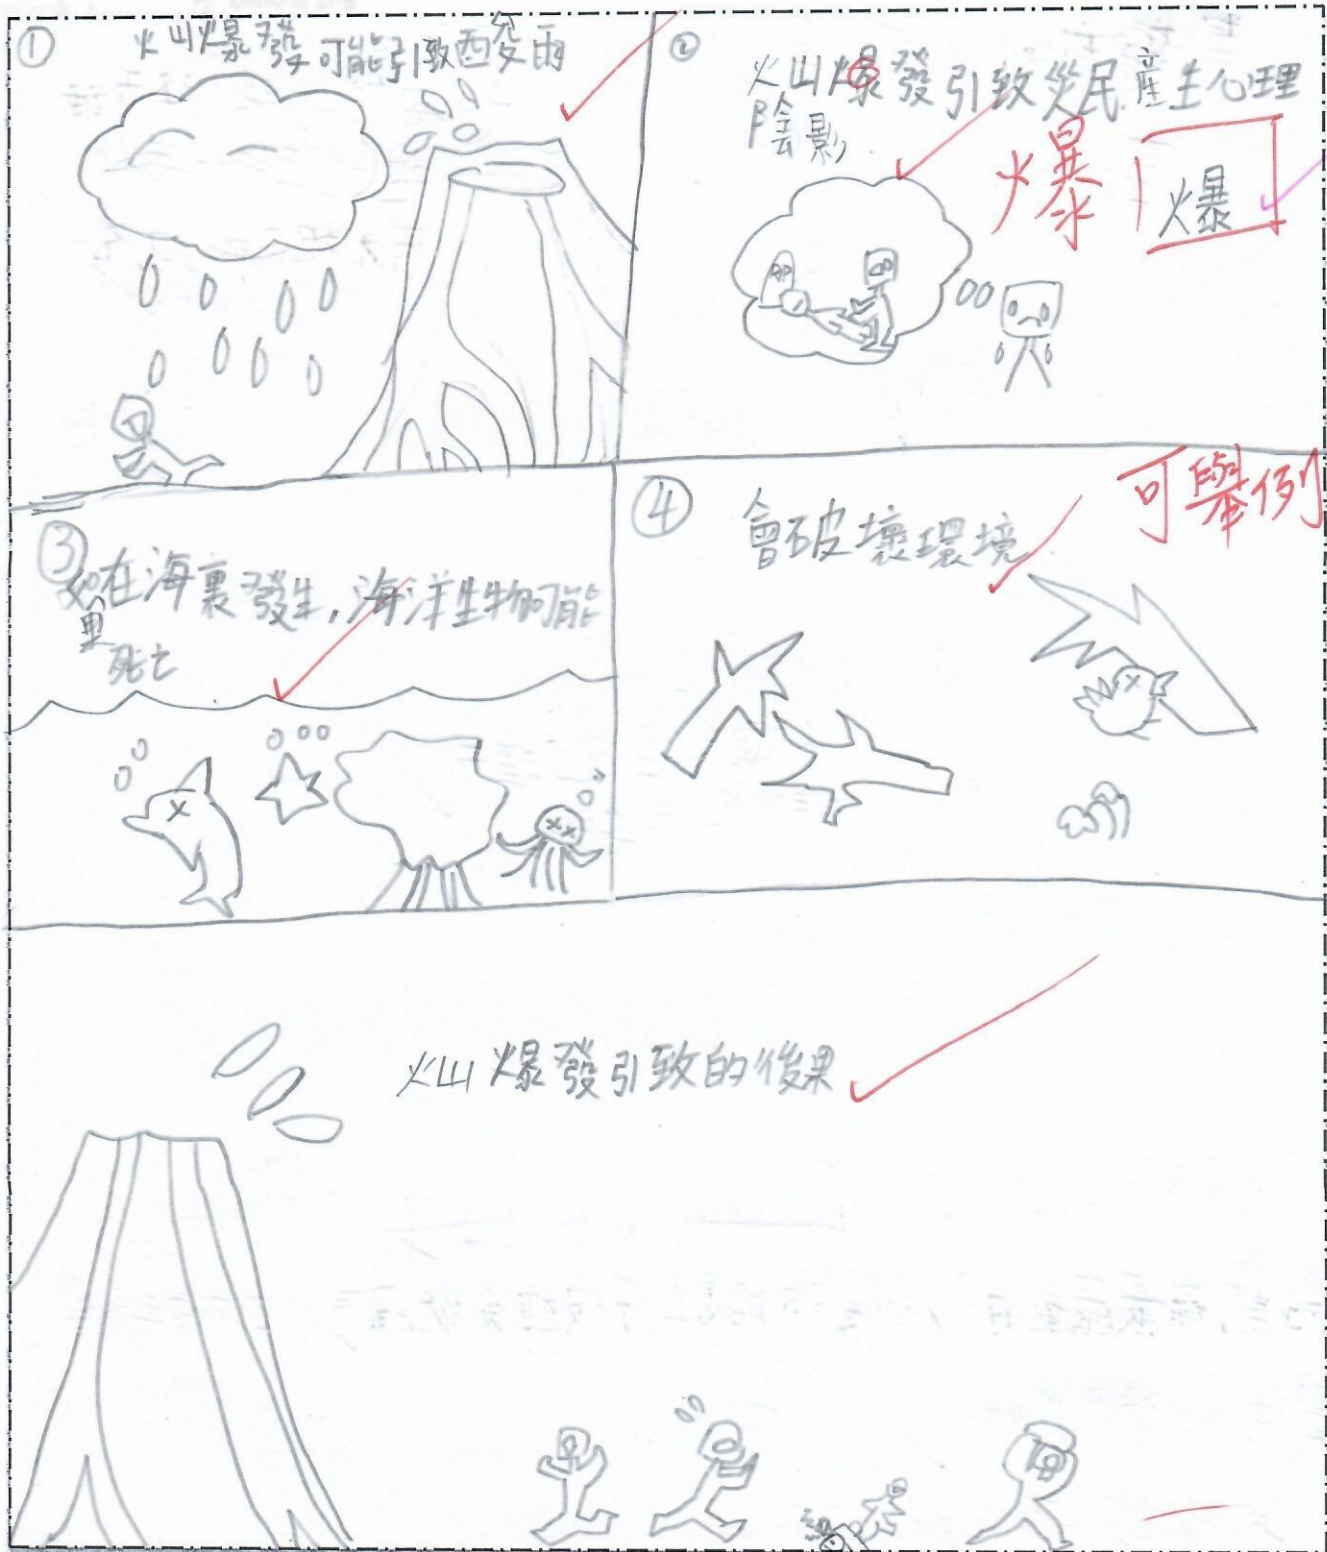 ① 火山爆發可能引致酸雨
② 火山爆發引致災民產生心理
陰影
爆
爆
③ 如果在海裏發生,海洋生物可能
死亡
④ 會破壞環境
可舉例
火山爆發引致的後果